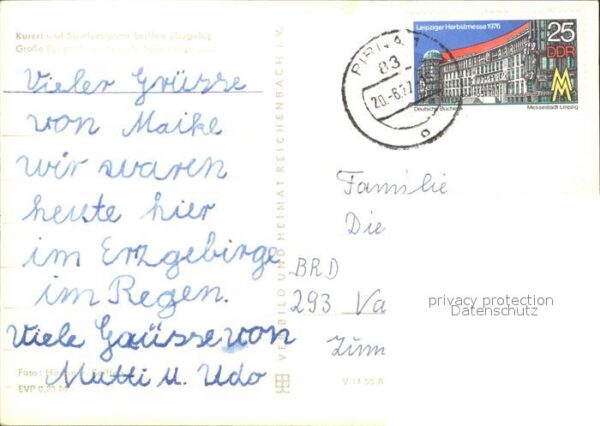 Kurort und Spielzeugdorf Seiffen (Erzgeb.)
Große
Vieler Grüsse
von Maike
wir waren
heute hier
im Erzgebirge
im Regen.
Viele Gaüsse von
Mutti u. Udo
Foto:
EVP
VERLAG BILD UND HEIMAT REICHENBACH I. V.
PIRNA 1
83
20.-6.77
a
Leipziger Herbstmesse 1976
25
DDR
MM
Deutsche Bücherei
Messestadt Leipzig
Familie
Die
BRD
293 Va
Zimm
privacy protection
Datenschutz